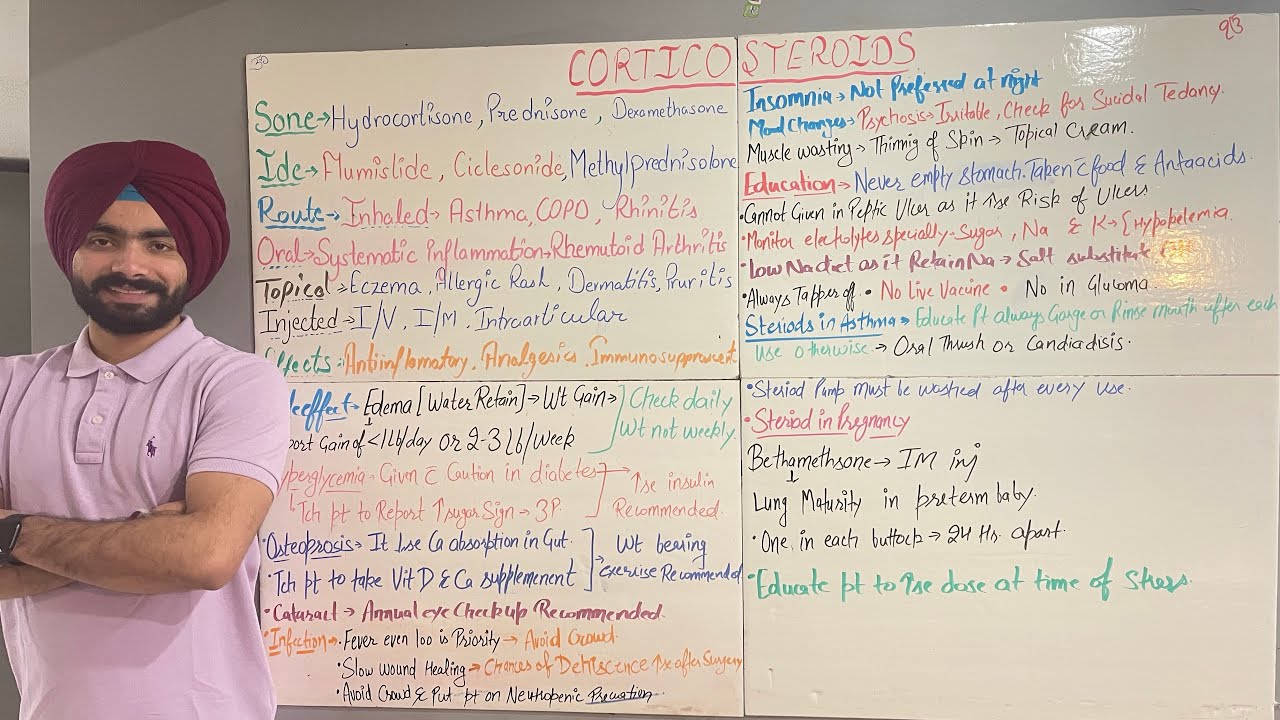 CORTICO STEROIDS
Sone→Hydrocortisone, Prednisone, Dexamethasone
Ide→Flumislide, Ciclesonide, Methylprednisolone
Route→Inhaled→Asthma, COPD, Rhinitis
Oral→Systematic inflammation→Rhemutoid Arthritis
Topical→Eczema, Allergic Rash, Dermatitis, Pruritis
Injected→I/V, I/M, Intrcarticular
ffects: Antiinflamatory, Analgesics, Immunosuppressent
effect→Edema [Water Retain]→Wt Gain→ Check daily
port Gain of <1Lb/day OR 2-3 lb/week Wt not weekly.
yperglycemia→Given c̄ Caution in diabetes→ ↑se insulin
Tch pt to Report ↑sugar Sign→3P. Recommended.
•Osteoprosis→It ↓se Ca absorption in Gut. Wt bearing
•Tch pt to take Vit D & Ca supplemenent exercise Recommended
•Cataract→Annual eye Checkup Recommended.
•Infection→•Fever even 100 is Priority→Avoid Crowd.
•Slow wound Healing→Chances of Dehiscence ↑se after Surgery
•Avoid Crowd & Put pt on Neuthopenic Precuation
Insomnia→Not Preferred at night
Mood Changes→Psychosis→Irritable, Check for Sucidal Tedancy.
Muscle wasting→Thinnig of Skin→Topical Cream.
Education→Never empty stomach. Taken c̄ food & Antaacids.
•Cannot Given in Peptic Ulcer as it ↑se Risk of Ulcers
•Monitor electrolytes specially→Sugar, Na & K→{Hypokelemia
•Low Na diet as it Retain Na→Salt substitute
•Always Tapper of •No Live Vacine •No in Glucoma.
Steriods in Asthma→Educate Pt always Garge or Rinse mouth after each
use otherwise→Oral Thrush or Candiadisis.
•Steriod Pump must be washed after every use.
•Steriod in Pregnancy
Bethamethsone→IM inj
↓
Lung Maturity in preterm baby.
•One in each buttock→24 Hs. apart.
•Educate pt to ↑se dose at time of Stress.